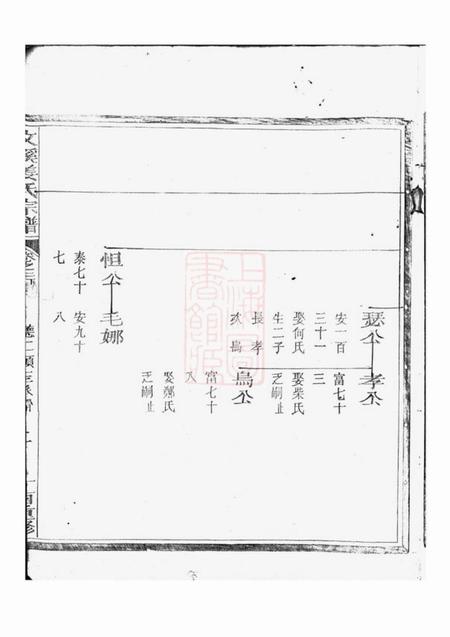 瑟公
安一百
三十一
娶何氏
生二子
長孝
次烏
孝公
富七十
三
娶柴氏
乏嗣止
烏公
富七十
八
娶鄭氏
乏嗣止
怛公
泰七十
七
毛娜
安九十
八
溪姜氏宗譜
上海圖書館藏